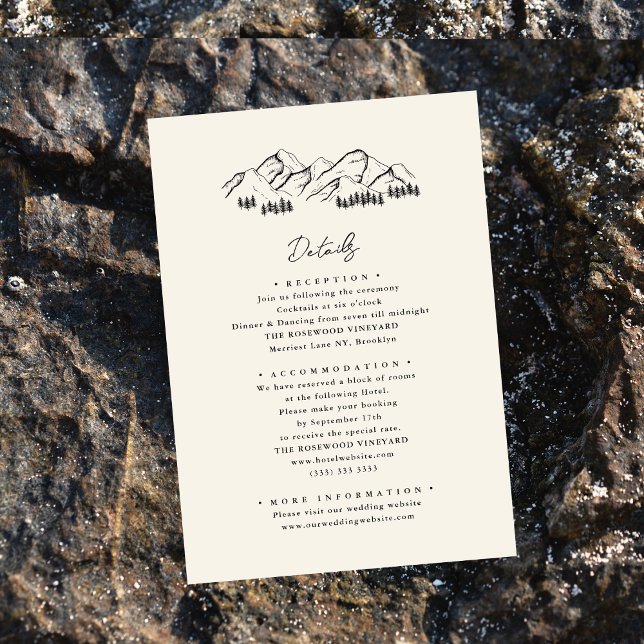 Details
• RECEPTION •
Join us following the ceremony
Cocktails at six o'clock
Dinner & Dancing from seven till midnight
THE ROSEWOOD VINEYARD
Merriest Lane NY, Brooklyn
• ACCOMMODATION •
We have reserved a block of rooms
at the following Hotel.
Please make your booking
by September 17th
to receive the special rate.
THE ROSEWOOD VINEYARD
www.hotelwebsite.com
(333) 333 3333
• MORE INFORMATION •
Please visit our wedding website
www.ourweddingwebsite.com